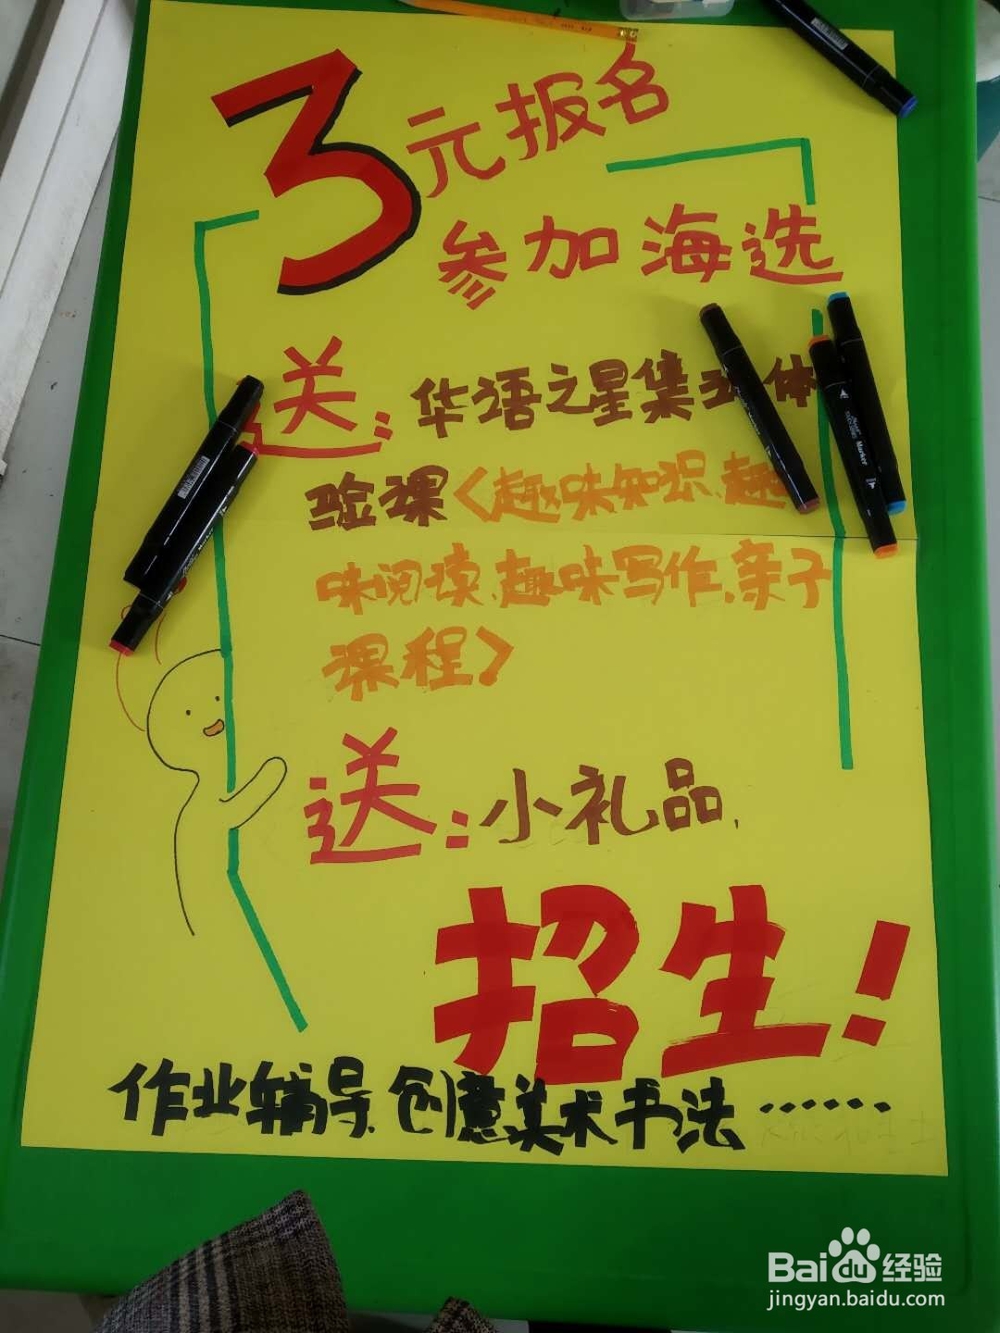 3元报名
参加海选
送：华语之星集 体
验课〈趣味知识、趣
味阅读、趣味写作、亲子
课程〉
送：小礼品，
招生！
作业辅导、创意美术书法……
Marker
Baidu经验
jingyan.baidu.com